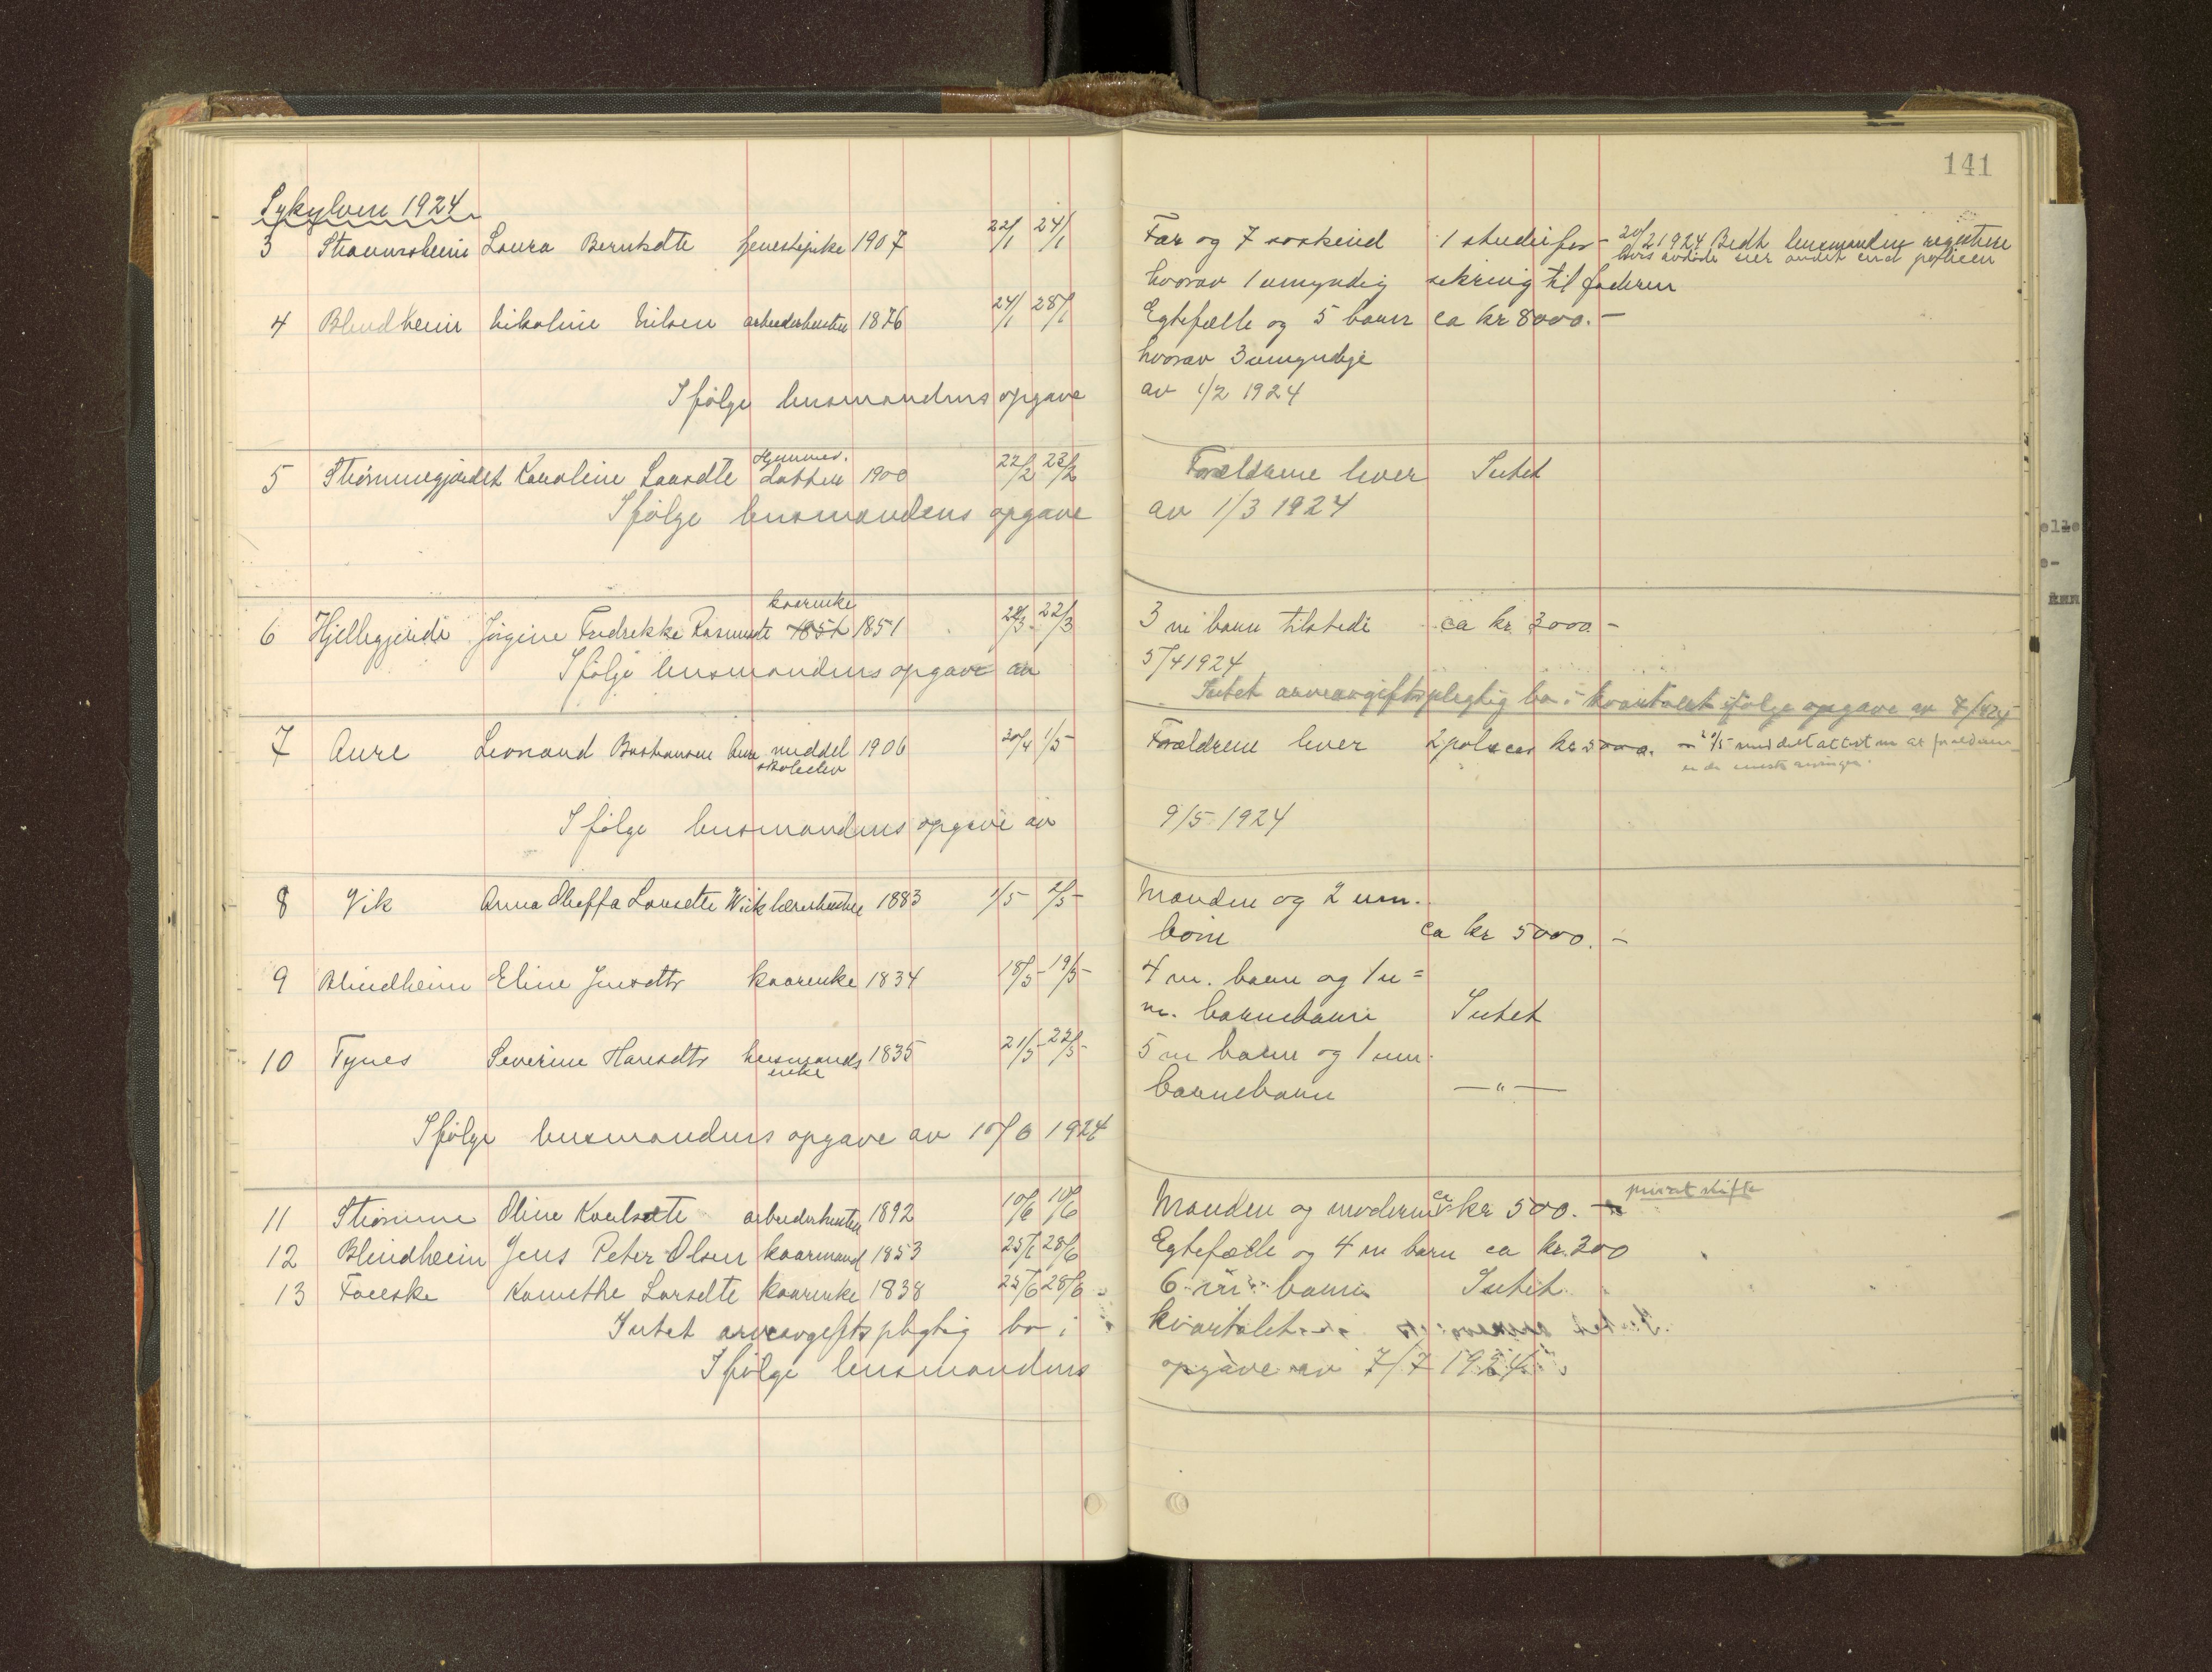 141
Sykylven 1924
3 Straumsheim Laura Berntsdtr tjenestepike 1907 22/1 24/1 Far og 7 søskend 1 studiefor- 20/2 1924 Bedt lensmanden registrere
hvis avdøde eier andet end policen
hvorav 1 umyndig sikring til faderen
4 Blindheim Nikoline Nilsen arbeiderhustru 1876 24/1 28/1 Egtefælle og 5 barn ca kr 8000.-
hvorav 3 umyndige
Ifølge lensmandens opgave av 1/2 1924
5 Strømmegjerdet Karoline Larsdtr Gaardm. datter 1900 22/2 23/2 Forældrene lever Intet
Ifølge lensmandens opgave av 1/3 1924
kaarenke
6 Hjellegjerde Jørgine Fredrikke Rasmusdtr 1851 1851 22/3 3 m barn tilstede ca kr 3000.-
Ifølge lensmandens opgave av 5/4 1924
Intet arveavgiftspligtig bo i kvartalet ifølge opgave av 7/4 24
7 Aure Leonard Bastiansen Aure middelskoleelev 1906 30/4 1/5 Forældrene lever 2 polser kr 5000. - meddelt attest om at forældrene
er de eneste arvinger.
Ifølge lensmandens opgave av 9/5 1924
8 Vik Anna Larsdtr Wiik lærerhustru 1883 1/5 2/5 Manden og 2 um.
born ca kr 5000.-
9 Blindheim Eline Jensdtr kaarenke 1834 18/5 19/5 4 m. barn og 1 u=
m. barnebarn Intet
10 Tynes Severine Hansdtr husmandsenke 1835 21/5 22/5 5 m barn og 1 um.
barnebarn —"—
Ifølge lensmandens opgave av 10/6 1924
11 Strømme Oline Karlsdtr arbeiderhustru 1892 10/6 10/6 Manden og moderen ca kr 500.- privat skifte
12 Blindheim Jens Peter Olsen kaarmand 1853 25/6 28/6 Egtefælle og 4 m barn ca kr. 300
13 Faueske Larsdtr kaarenke 1838 25/6 28/6 6 m barn Intet
Intet arveavgiftspligtig bo i kvartalet
Ifølge lensmandens opgave av 7/7 1924
elle
e-